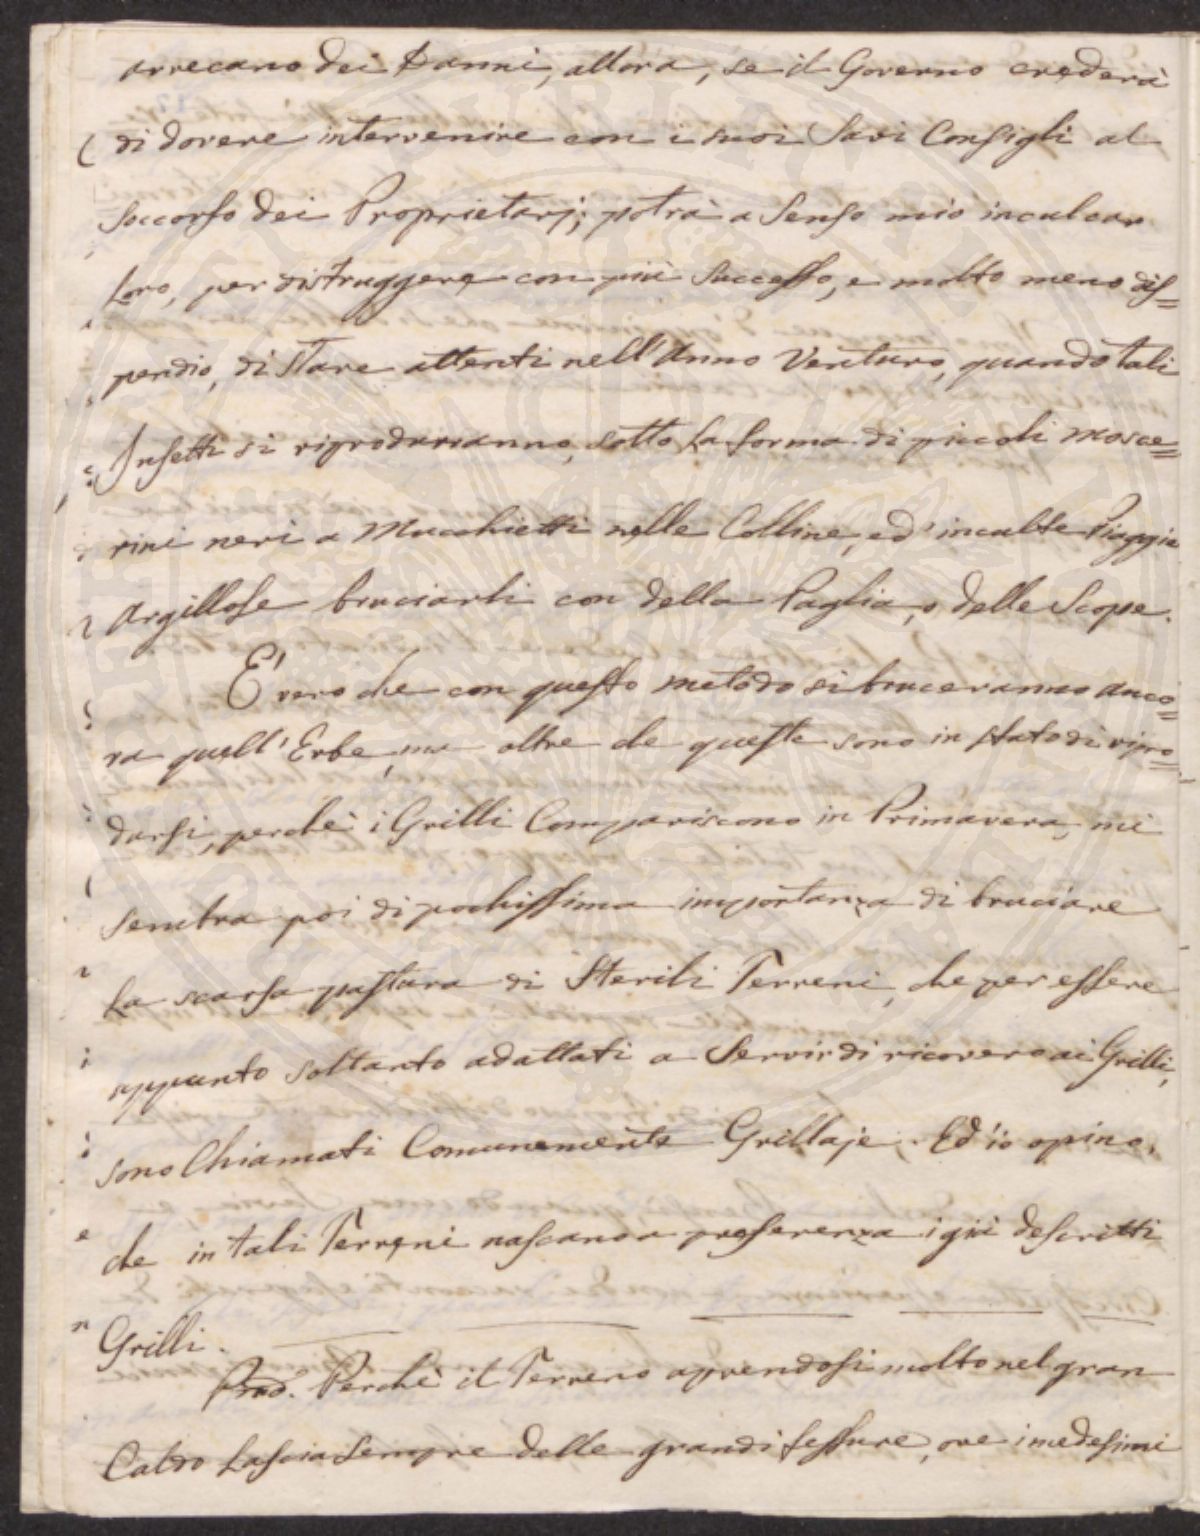 arrecano dei Danni, allora, se il Governo crederà
di dovere intervenire con i suoi Savi Consigli al
Soccorso dei Proprietarj; potrà a Senso mio inculcar
Loro, per distruggere con più Successo, e molto meno dis=
pendio, di Stare attenti nell'Anno Venturo, quando tali
Insetti si riprodurranno, sotto La forma di piccoli mosce=
rini neri a Mucchietti nelle Colline, ed' inculte Piaggie
Argillose bruciarli con della Paglia, o delle Scope.
E' vero che con questo metodo si bruceranno anco=
ra quell'Erbe, ma oltre che queste sono in stato di ripro=
dursi, perchè i Grilli Compariscono in Primavera, mi
sembra poi di pochissima importanza di bruciare
La scarsa pastura di Sterili Terreni, che per essere
appunto soltanto adattati a Servir di ricovero ai Grilli,
sono Chiamati Comunemente Grillaje. Ed' io opino,
che in tali Terreni nascano a preferenza i già descritti
Grilli.
Perchè il Terreno aprendosi molto nel gran
Caldo Lascia Sempre delle grandi fessure, ove i medesimi